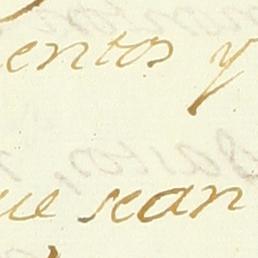 entos y
ue sean